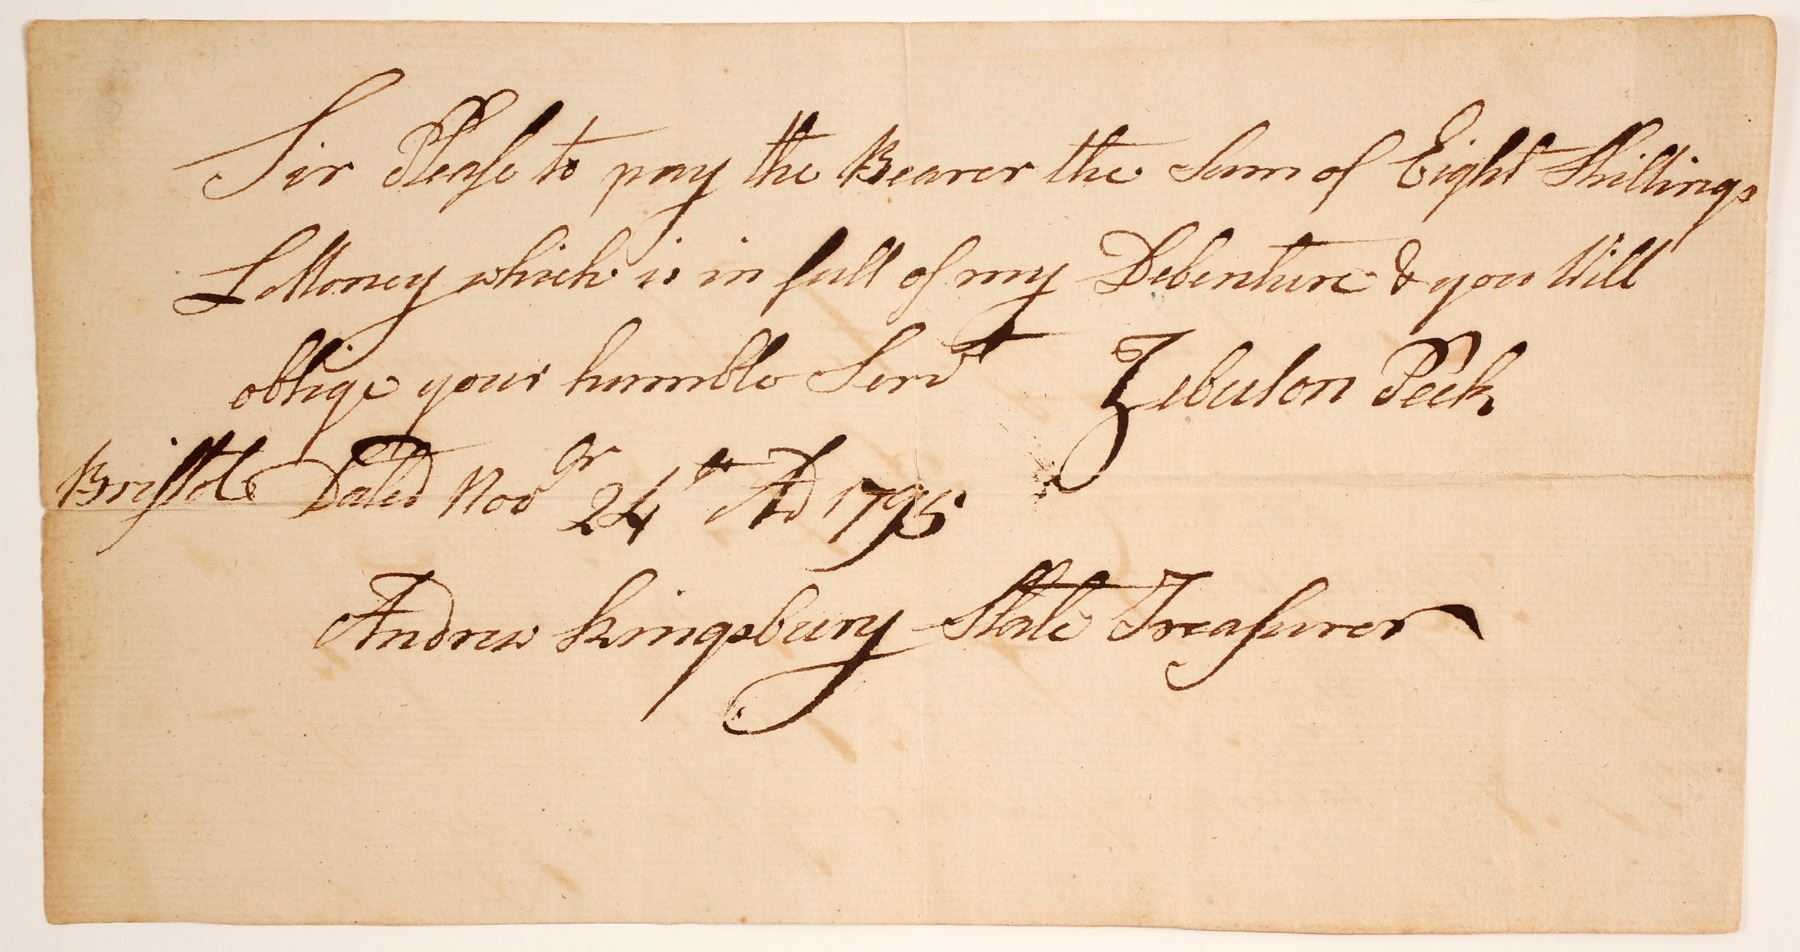 Sir Please to pay the Bearer the Sum of Eight Shillings
L Money which is in full of my Debenture & you Will
oblige your humble Servt Zebulon Peck
Bristol Dated Novr 24th AD 1795
Andrew Kingsbury State Treasurer